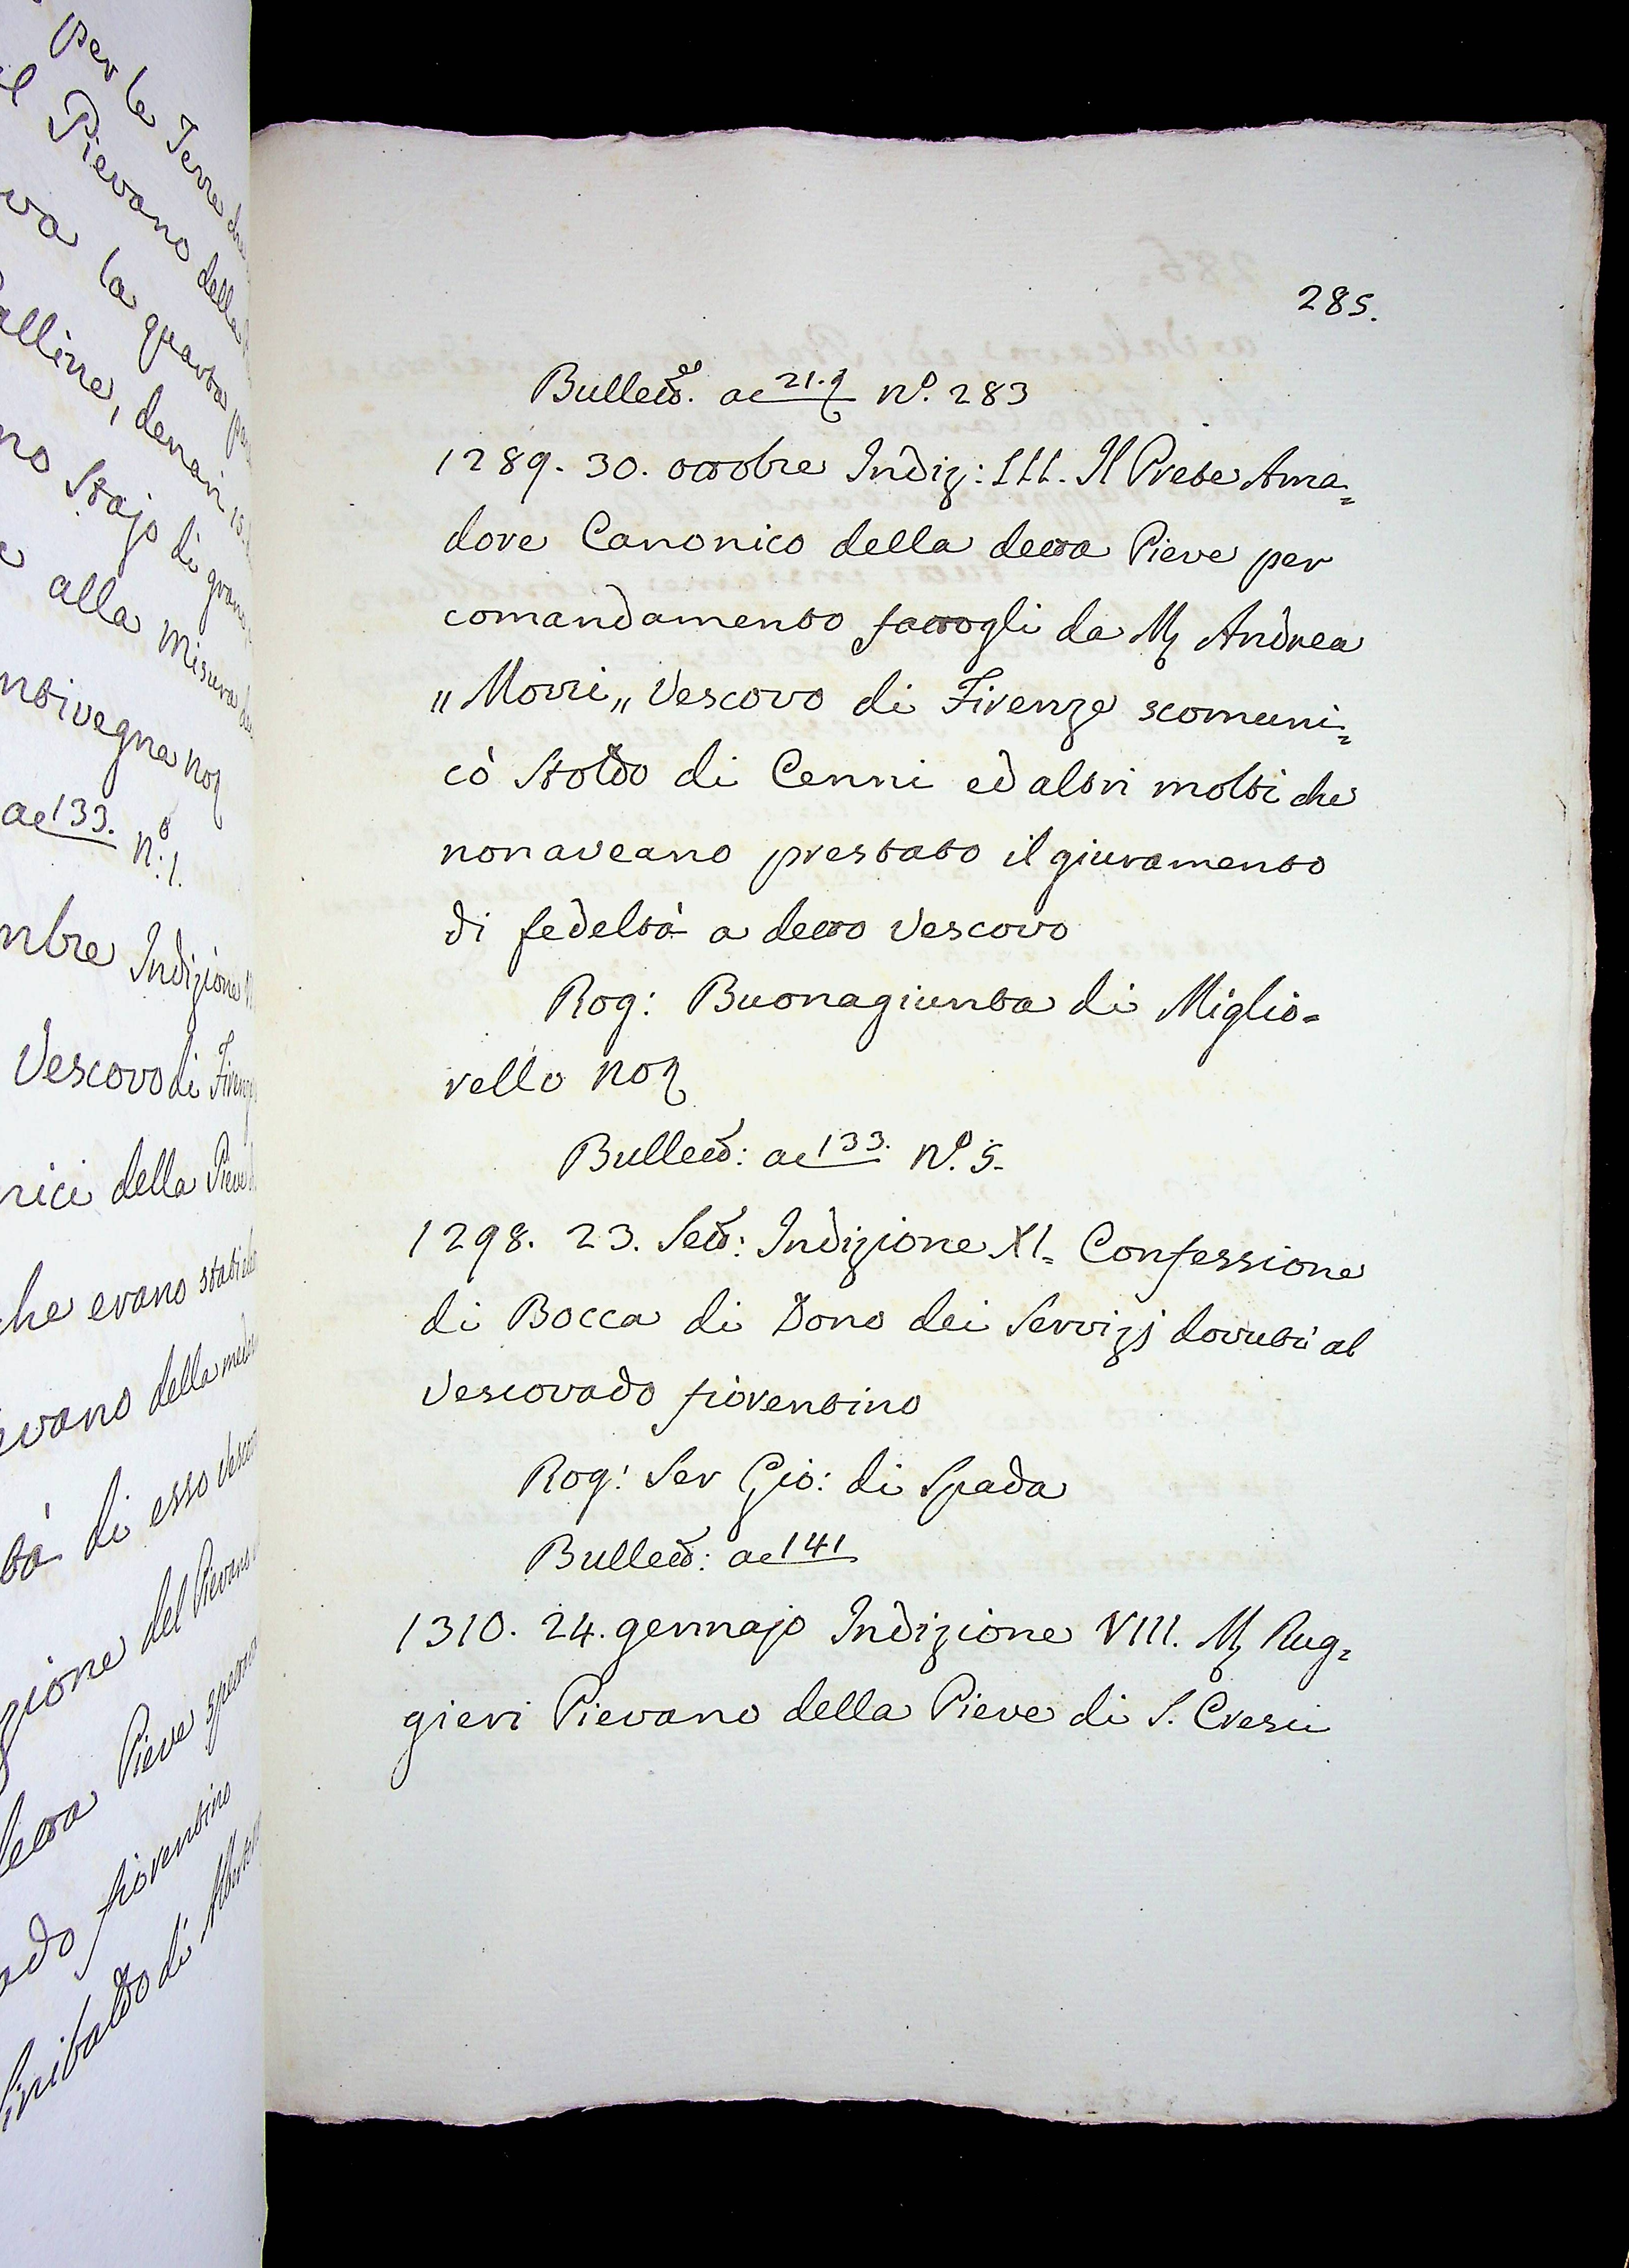 per le Terre che
il Pievano della
va la quarta
alline, denari
no Stajo di grano
alla Misura
ntivegna not
ac 133. nº: 1.
mbre Indizione
Vescovo di Firenze
nici della Pieve
che erano stati
evano della
tà di esso
zione del Pievano
detta Pieve
ado fiorentino
Sinibaldo di
285.
Bullett. ac 21.t nº. 283
1289. 30. ottobre Indiz: III. Il Prete Ama=
dore Canonico della detta Pieve per
comandamento fattogli da M Andrea
„ Mozzi „ Vescovo di Firenze scomuni=
cò Stoldo di Cenni ed altri molti che
non aveano prestato il giuramento
di fedeltà a detto Vescovo
Rog: Buonagiunta di Miglio=
rello not
Bullett: ac 133. nº. 5.
1298. 23. Sett: Indizione XI. Confessione
di Bocca di Dono dei Servizj dovuti al
Vescovado fiorentino
Rog: Ser Gio: di Spada
Bullett: ac 141
1310. 24. gennajo Indizione VIII. M Rug=
gieri Pievano della Pieve di S. Cresci